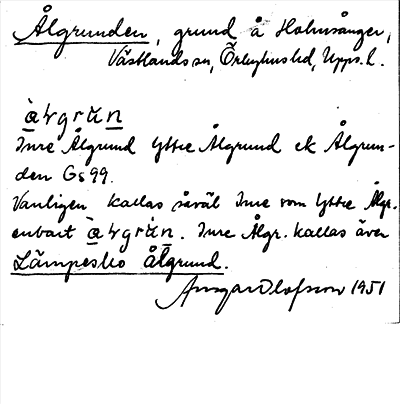 Ålgrunden, grund å Holmsånger,
Västlands sn, Örbyhus hd, Upps. l.
Inre Ålgrund Yttre Ålgrund ek Ålgrun-
den Gs 99.
Vanligen kallas såväl Inre som Yttre Ålgr.
enbart . Inre Ålgr. kallas även
Lämpesko Ålgrund.
Ansgar Olofsson 1951